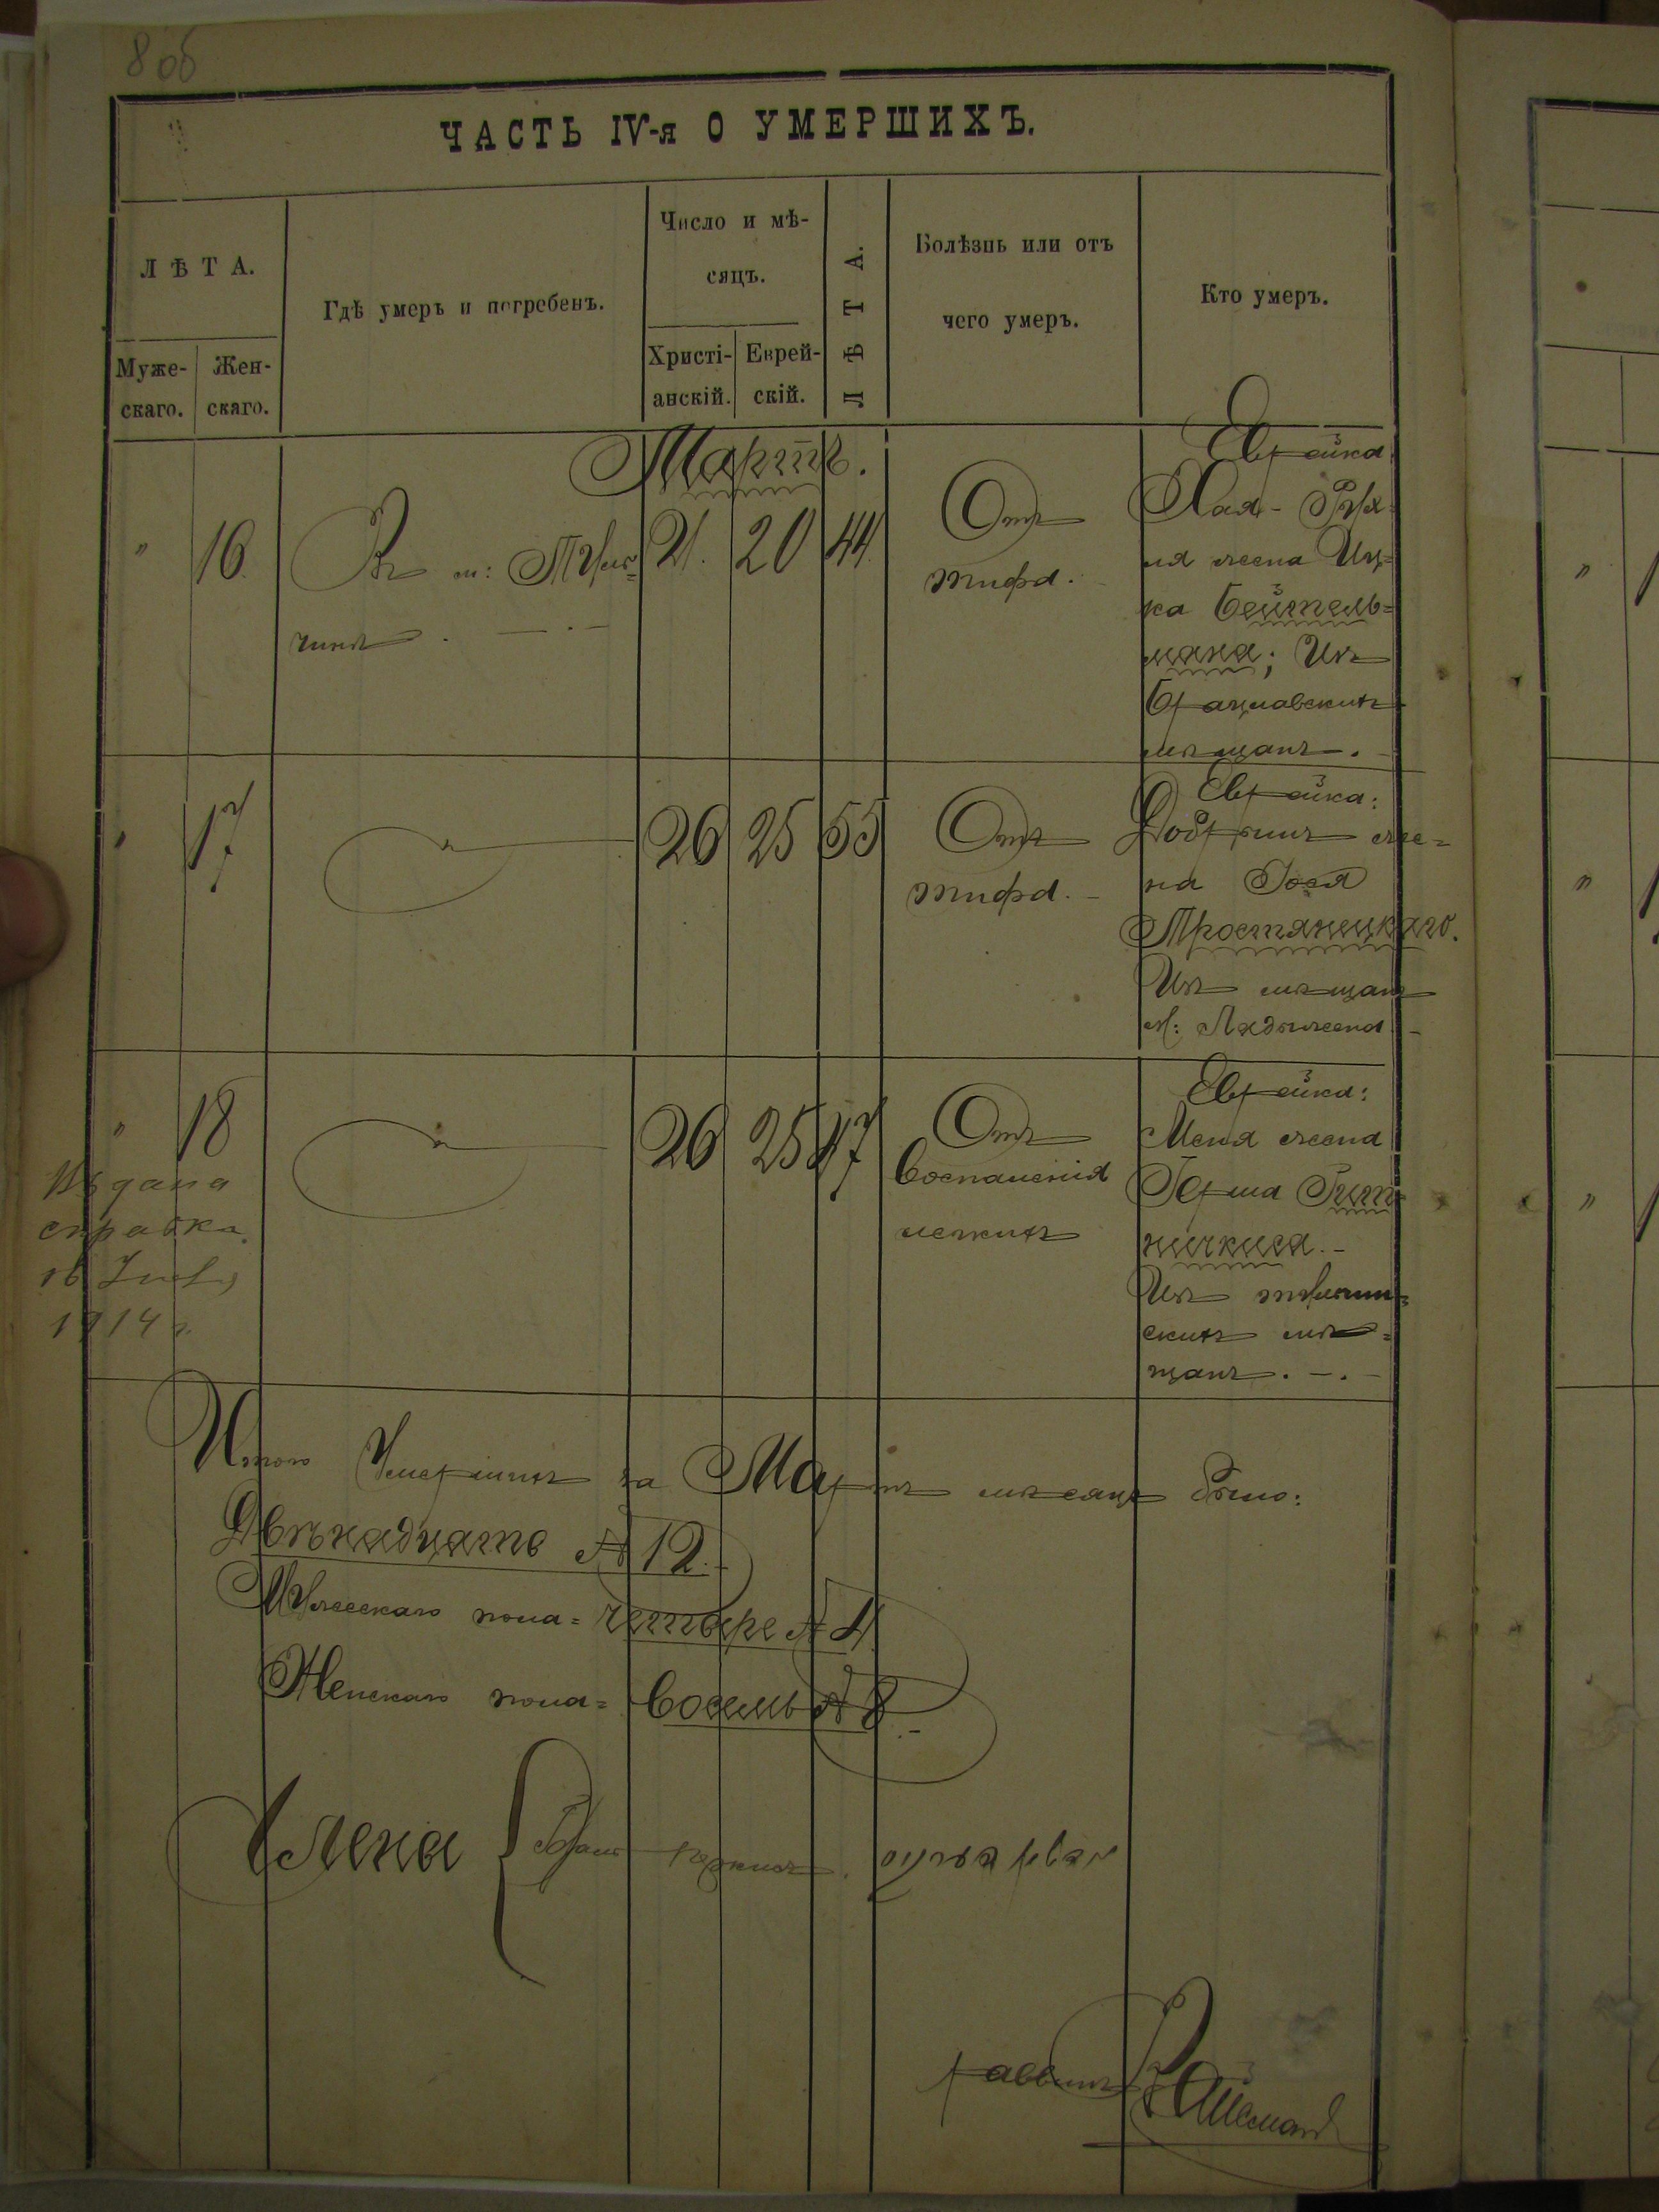 8 об
ЧАСТЬ IV-я О УМЕРШИХЪ.
ЛѢТА.
Муже-
скаго.
Жен-
скаго.
Гдѣ умеръ и погребенъ.
Число и мѣ-
сяцъ.
Христі-
анскій.
Еврей-
скій.
ЛѢТА.
Болѣзнь или отъ
чего умеръ.
Кто умеръ.
Мартъ.
" 16. Въ м: Туль-
чинѣ . — . —
21. 20 44
Отъ
тифа.
Еврейка
Хая - Рух-
ля жена Иц-
ка Бейтель-
мана; Изъ
Брацлавскихъ
мѣщанъ. -
" 17
"
26 25 55
Отъ
тифа. -
Еврейка:
Добрышъ же-
на Іося
Тростянецкаго.
Изъ мѣщанъ
м: Ладыжена -
" 18
"
26 25 47
Отъ
Воспаленія
легкихъ
Еврейка:
Меня жена
Герша
Изъ тульчин-
скихъ мѣ-
щанъ. - . -
Выдана
справка
16
1914 г.
Итого Умершихъ за Мартъ мѣсяцъ было:
Двѣнадцать № 12.
Мужескаго пола = четыре № 4
Женскаго пола = Восемь № 8. -
Члена
раввинъ